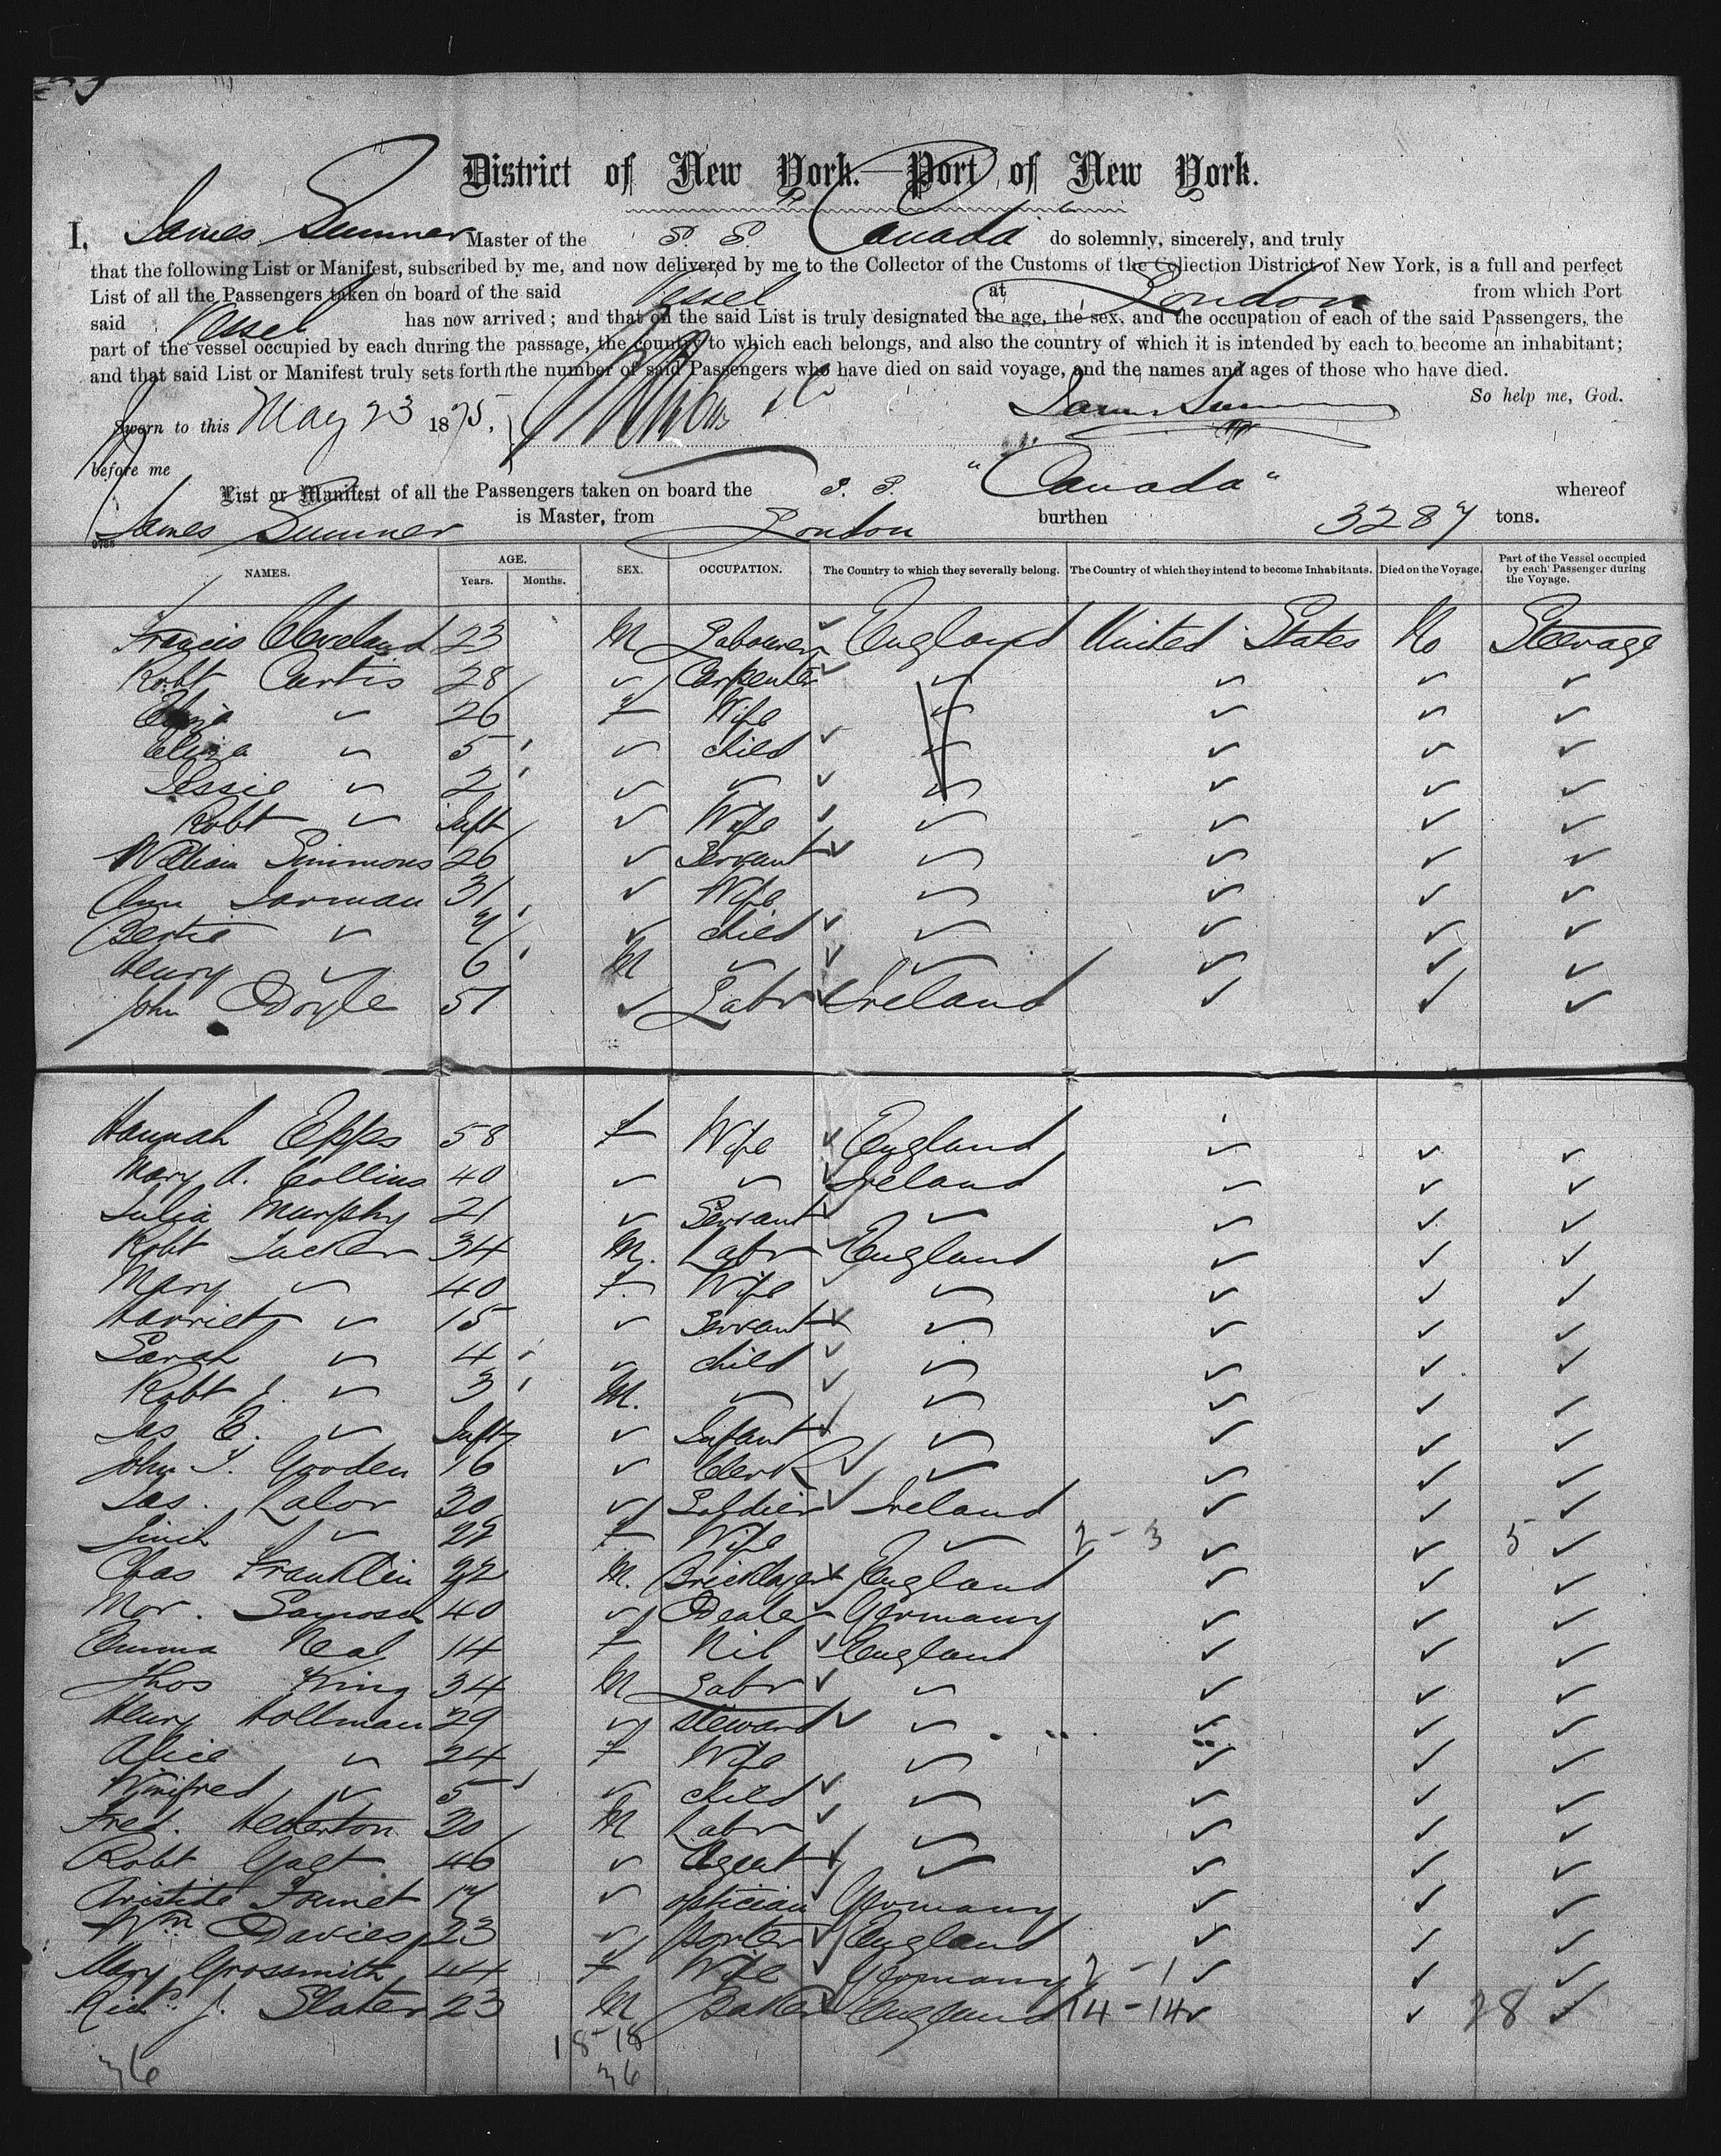 District of New York. Port of New York.
I, James Sumner Master of the S. S. Canada do solemnly, sincerely, and truly
that the following List or Manifest, subscribed by me, and now delivered by me to the Collector of the Customs of the Collection District of New York, is a full and perfect
List of all the Passengers taken on board of the said Vessel at London from which Port
said Vessel has now arrived; and that on the said List is truly designated the age, the sex, and the occupation of each of the said Passengers, the
part of the vessel occupied by each during the passage, the country to which each belongs, and also the country of which it is intended by each to become an inhabitant;
and that said List or Manifest truly sets forth the number of said Passengers who have died on said voyage, and the names and ages of those who have died.
So help me, God.
Sworn to this May 23 1875, James Sumner
before me
List or Manifest of all the Passengers taken on board the S. S. "Canada" whereof
James Sumner is Master, from London burthen 3287 tons.
NAMES. AGE. Years. Months. SEX. OCCUPATION. The Country to which they severally belong. The Country of which they intend to become Inhabitants. Died on the Voyage. Part of the Vessel occupied by each Passenger during the Voyage.
Francis Cleveland 23 M Labourer England United States No Steerage
Robt Curtis 28 ✓ Carpenter ✓ ✓ ✓ ✓
Eliza ✓ 26 F Wife ✓ ✓ ✓ ✓
Eliza ✓ 5 ✓ child ✓ ✓ ✓ ✓
Jessie ✓ 2 ✓ ✓ ✓ ✓ ✓ ✓
Robt ✓ Inft ✓ Wife ✓ ✓ ✓ ✓
William Simmons 26 ✓ Servant ✓ ✓ ✓ ✓
Ann Jarman 31 ✓ Wife ✓ ✓ ✓ ✓
Bertie ✓ 7 ✓ child ✓ ✓ ✓ ✓
Henry ✓ 6 M ✓ ✓ ✓ ✓ ✓
John Doyle 51 ✓ Labr Ireland ✓ ✓ ✓
Hannah Epps 58 F Wife England ✓ ✓ ✓
Mary A. Collins 40 ✓ ✓ Ireland ✓ ✓ ✓
Julia Murphy 21 ✓ Servant ✓ ✓ ✓ ✓
Robt Tucker 34 M. Labr England ✓ ✓ ✓
Mary ✓ 40 F. Wife ✓ ✓ ✓ ✓
Harriet ✓ 15 ✓ Servant ✓ ✓ ✓ ✓
Sarah ✓ 4 ✓ child ✓ ✓ ✓ ✓
Robt J. ✓ 3 M. ✓ ✓ ✓ ✓ ✓
Jas E. ✓ Inft ✓ Infant ✓ ✓ ✓ ✓
John T. Gooden 16 ✓ Clerk ✓ ✓ ✓ ✓
Jas. Lalor 30 ✓ Soldier Ireland ✓ ✓ ✓
✓ 22 F Wife ✓ 2-3 ✓ ✓ 5 ✓
Chas Franklin 22 M. Bricklayer England ✓ ✓ ✓
Mor. 40 ✓ Dealer Germany ✓ ✓ ✓
Emma Neal 14 F Nil England ✓ ✓ ✓
Thos King 34 M Labr ✓ ✓ ✓ ✓
Henry Hollman 29 ✓ Steward ✓ ✓ ✓ ✓
Alice ✓ 24 F Wife ✓ ✓ ✓ ✓
Winifred ✓ 5 ✓ child ✓ ✓ ✓ ✓
Fred. Hederton 30 M Labr ✓ ✓ ✓ ✓
Robt Galt 46 ✓ Agent ✓ ✓ ✓ ✓
Aristide 17 ✓ optician Germany ✓ ✓ ✓
Wm Davies 23 ✓ Porter England ✓ ✓ ✓
Mary Grossmith 44 F Wife Germany 2-1 ✓ ✓ ✓
Richd. J. Slater 23 M Baker England 14-14 ✓ ✓ 28 ✓
18-18
36 36